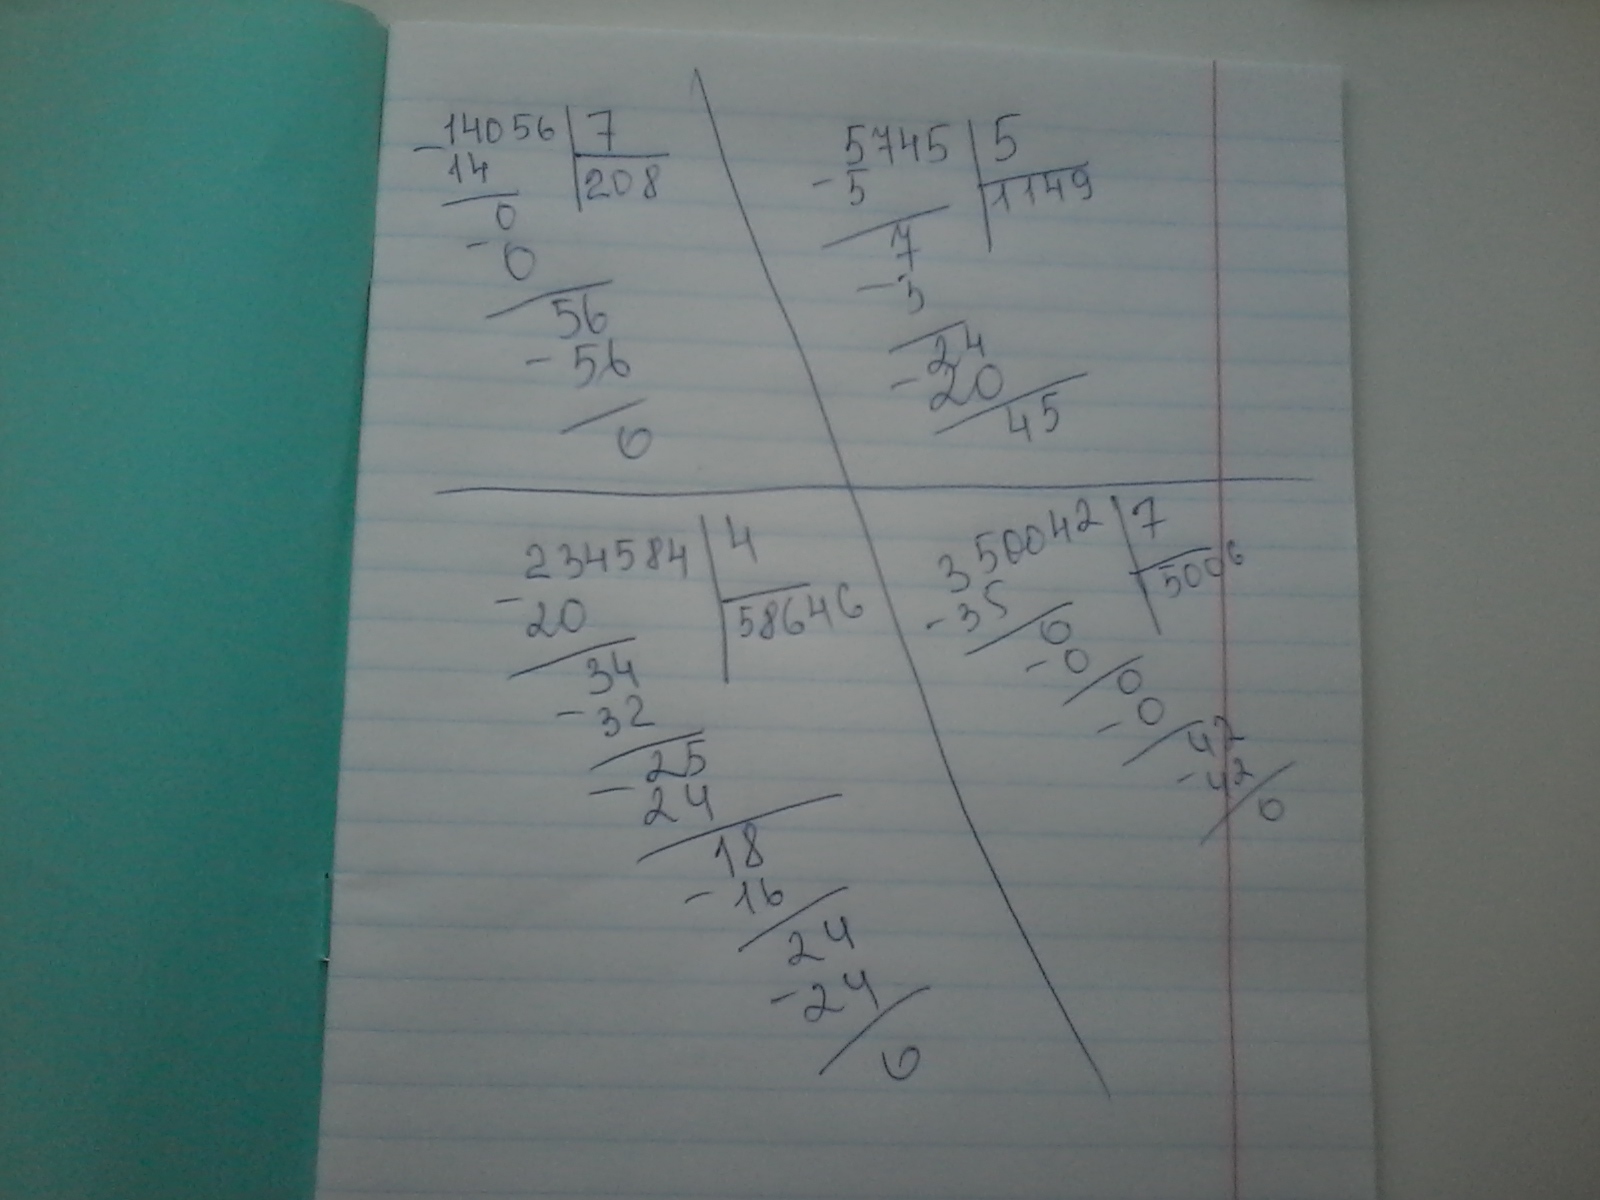 -14056 | 7
14 | 208
0
-0
56
-56
0
5745 | 5
-5 | 1149
7
-5
24
-20
45
234584 | 4
-20 | 58646
34
-32
25
-24
18
-16
24
-24
0
350042 | 7
-35 | 5006
0
-0
0
-0
42
-42
0